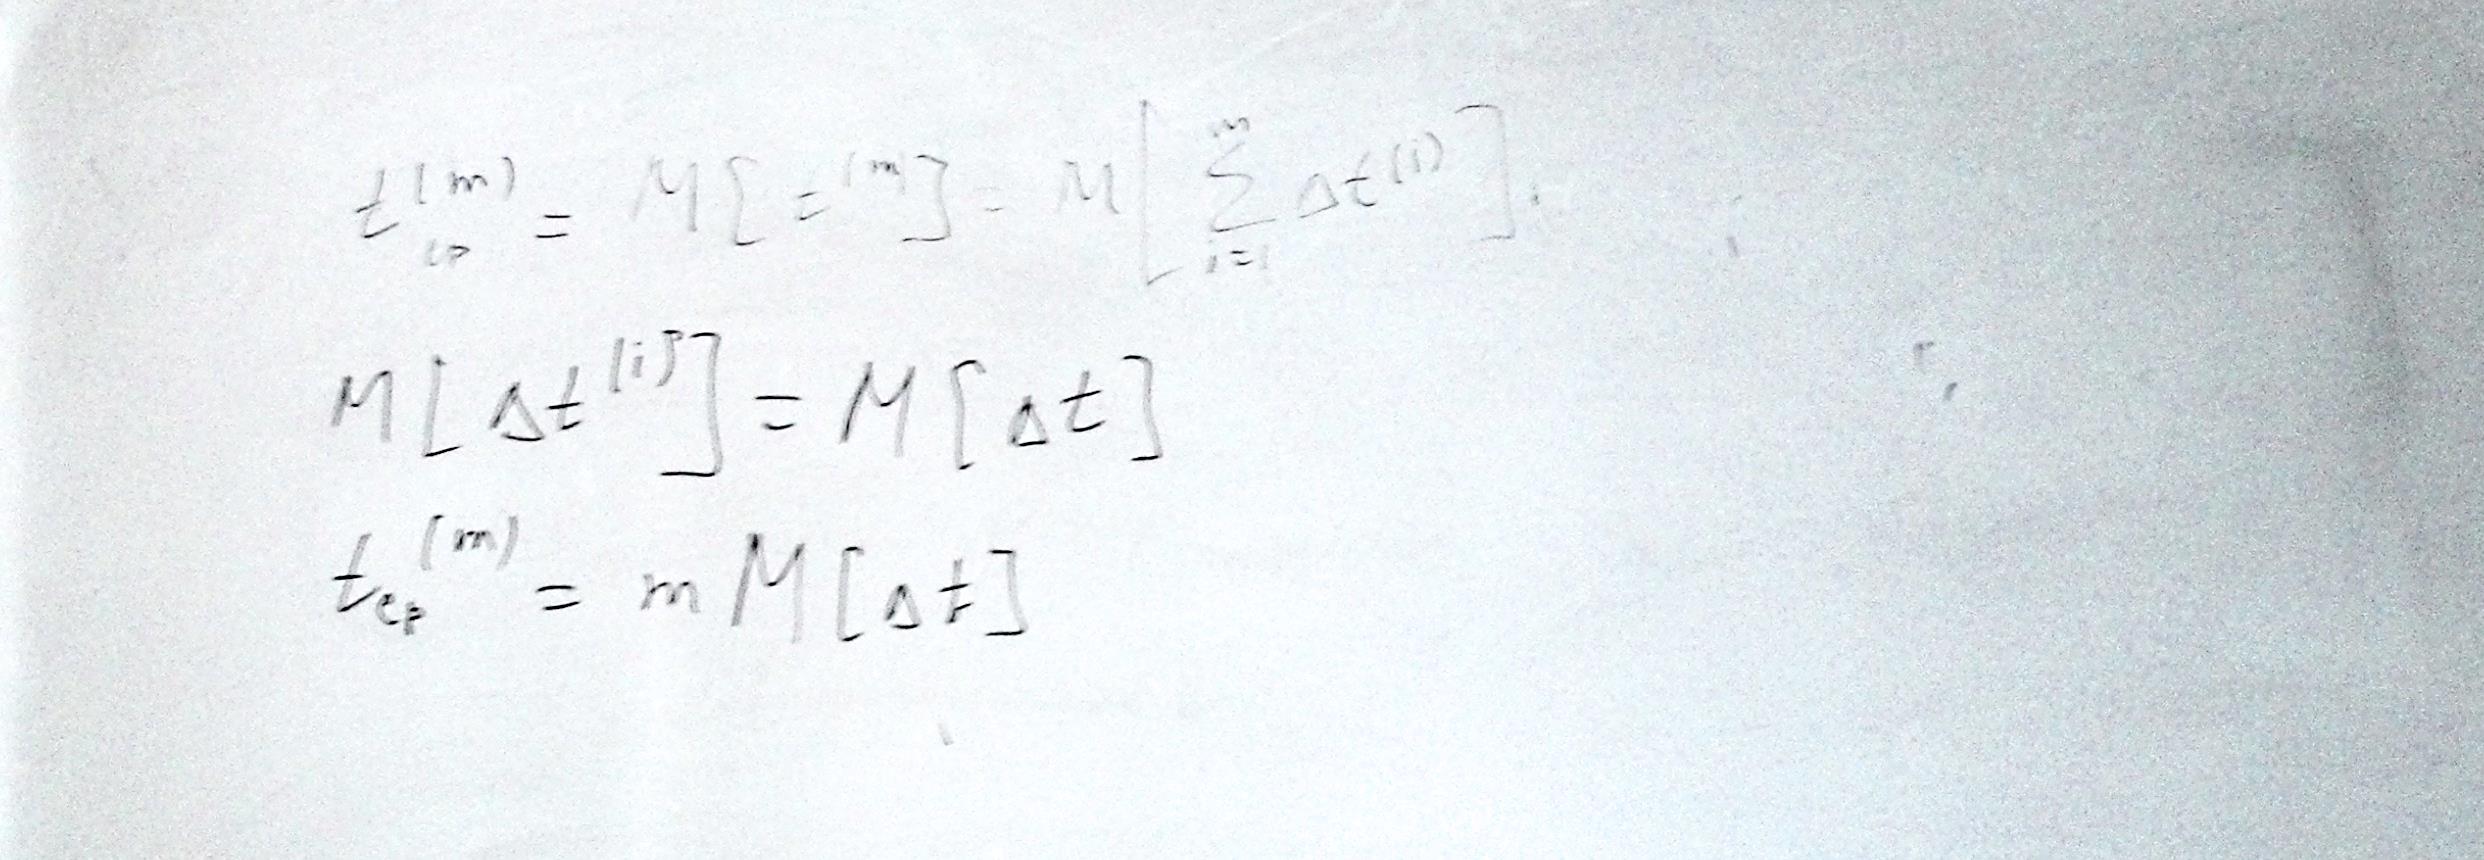 t_{ср}^{(m)} = M[t^{(m)}] = M[∑_{i=1}^{m} Δt^{(i)}].
M[Δt^{(i)}] = M[Δt]
t_{ср}^{(m)} = m M[Δt]